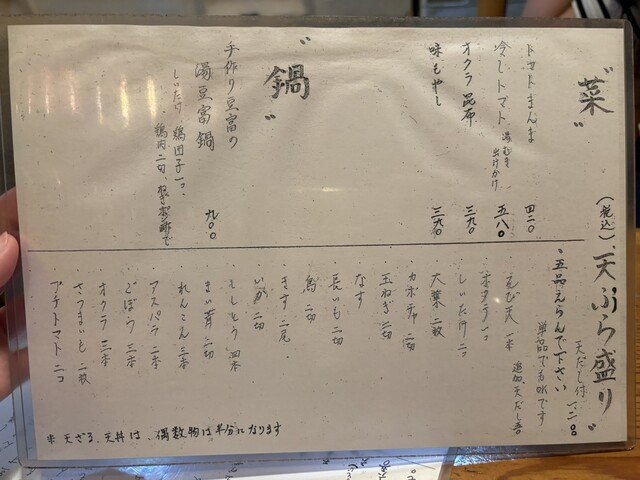 "菜"
トマトまんま 四二〇
冷しトマト 湯むき 出汁かけ 五八〇
オクラ昆布 三九〇
味もやし 三九〇
"鍋"
手作り豆富の
湯豆富鍋 九〇〇
しいたけ 鶏団子一コ、
鶏肉二切、
(税込)
"天ぷら盛り"
天だし付 一、二〇〇
・五品えらんで下さい
単品でもOKです
追加天だし
・えび天 一本
・ホタテ 一コ
・しいたけ 二コ
・大葉 二枚
・カボチャ 二切
・玉ねぎ 二切
・なす
・長いも 二切
・鳥 二切
・きす 二尾
・いか 二切
・ししとう 四本
・まい茸 二切
・れんこん 三本
・アスパラ 二本
・ごぼう 三本
・オクラ 三本
・さつまいも 二枚
・プチトマト 二コ
※天ざる、天丼は、偶数物は半分になります